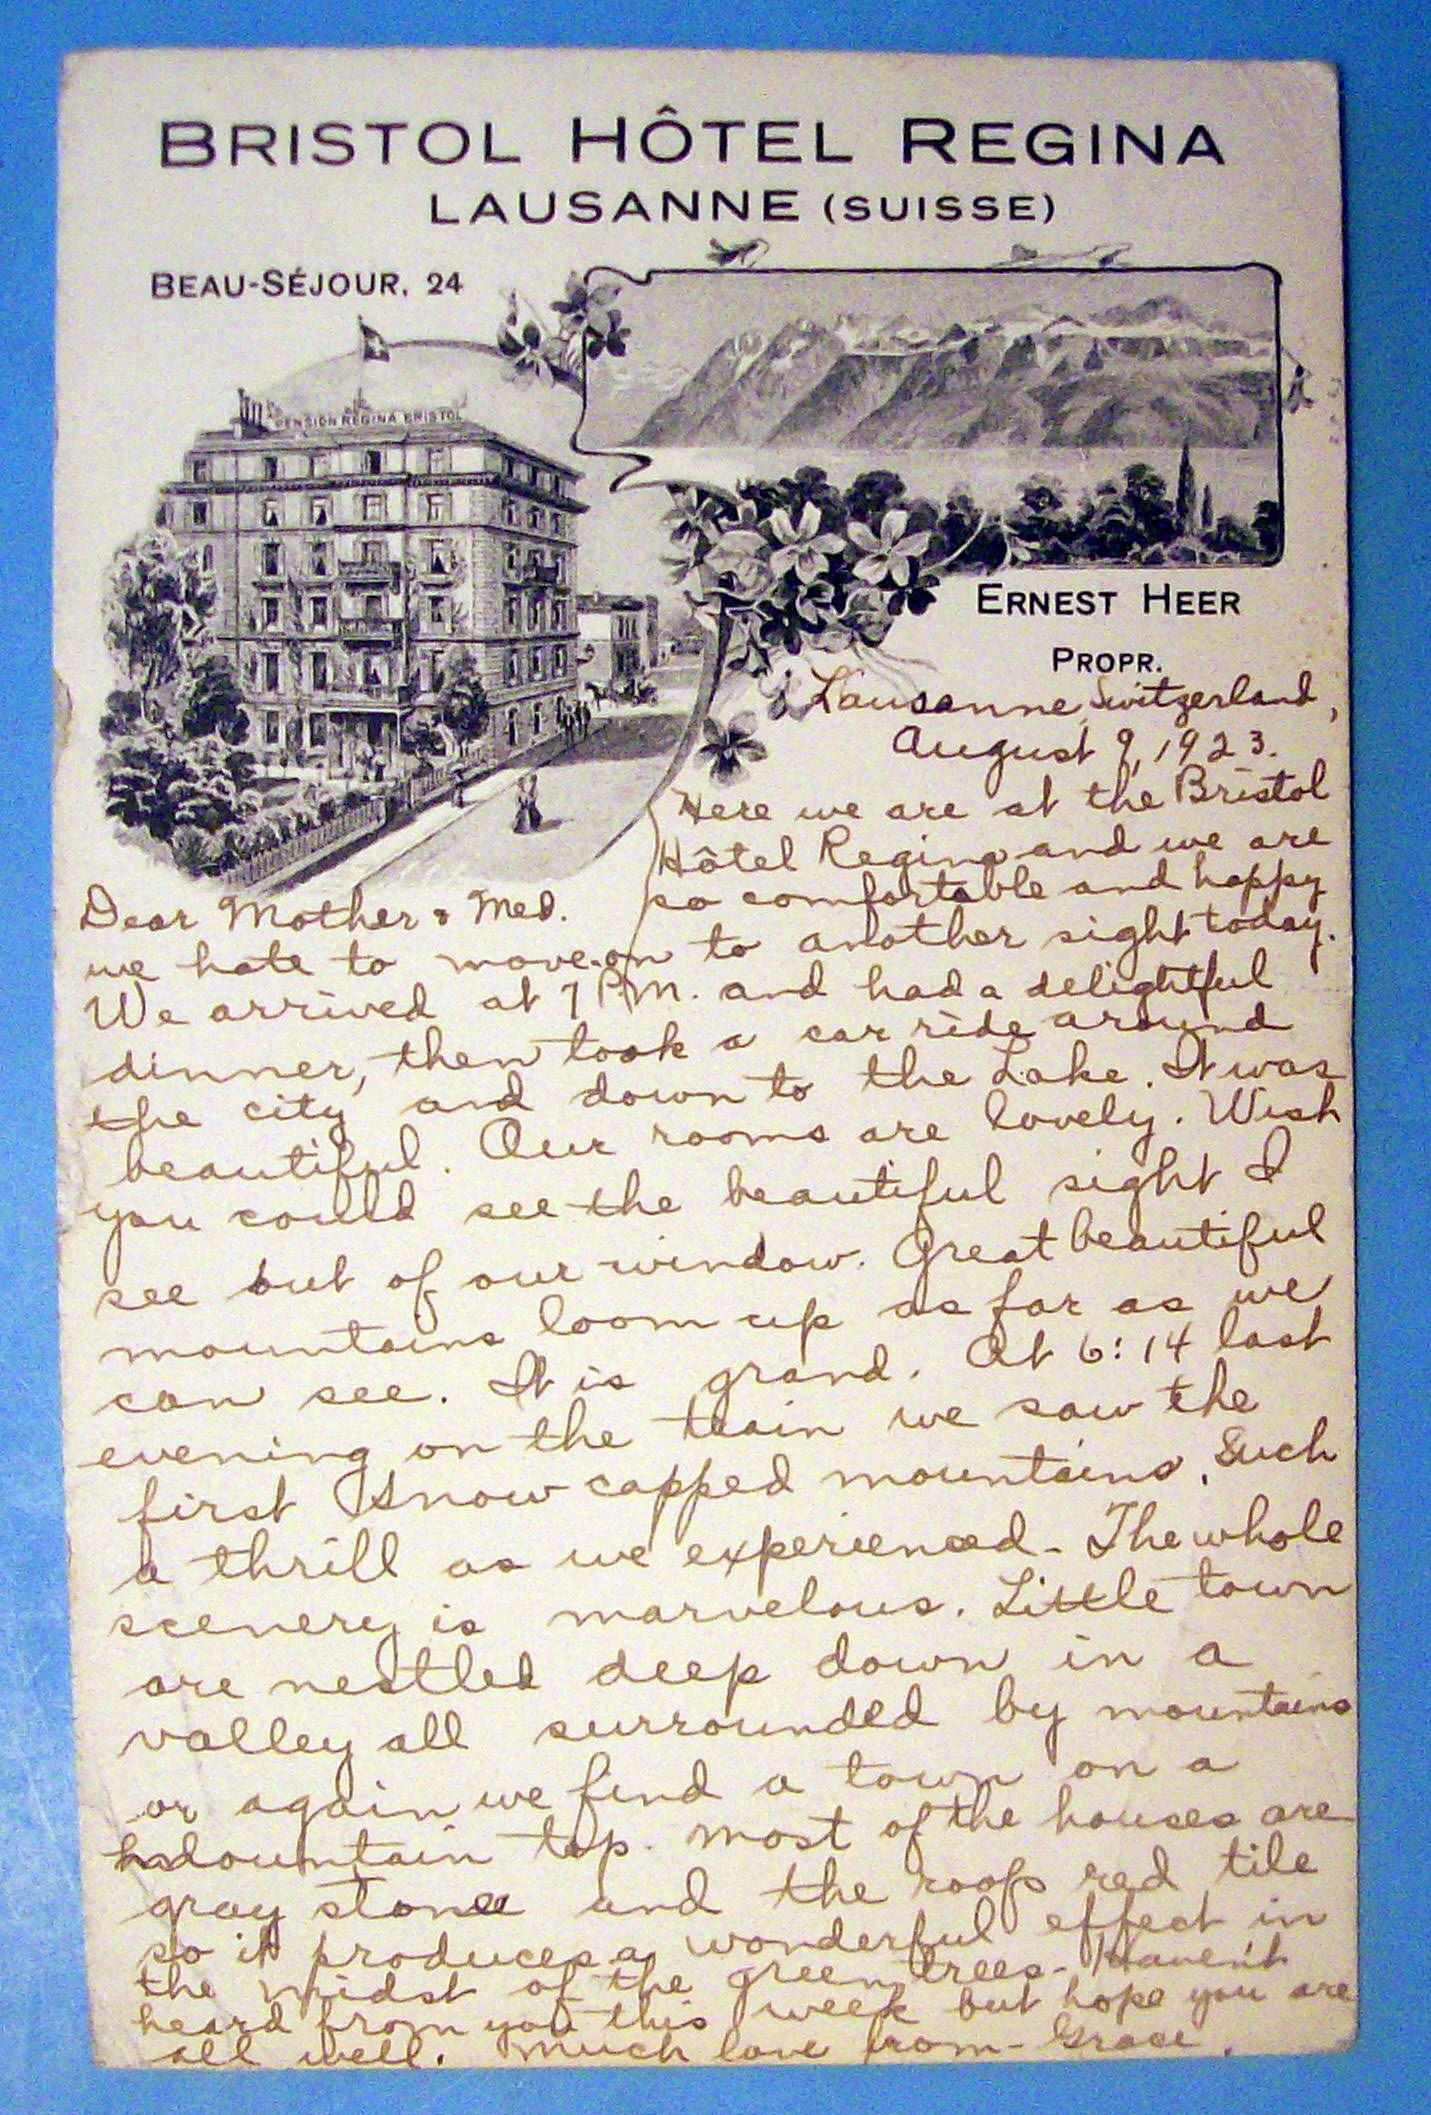 BRISTOL HÔTEL REGINA
LAUSANNE (SUISSE)
BEAU-SÉJOUR, 24
PENSION REGINA BRISTOL
ERNEST HEER
PROPR.
Lausanne, Switzerland,
August 9, 1923.
Here we are at the Bristol
Hôtel Regina and we are
Dear Mother & Med. so comfortable and happy
we hate to move on to another sight today.
We arrived at 7 P.M. and had a delightful
dinner, then took a car ride around
the city and down to the Lake. It was
beautiful. Our rooms are lovely. Wish
you could see the beautiful sight I
see out of our window. Great beautiful
mountains loom up as far as we
can see. It is grand. At 6:14 last
evening on the train we saw the
first snow capped mountains. Such
a thrill as we experienced - The whole
scenery is marvelous. Little town
are nestled deep down in a
valley all surrounded by mountains
or again we find a town on a
mountain top. Most of the houses are
gray stone and the roofs red tile
so it produces a wonderful effect in
the midst of the green trees - Haven't
heard from you this week but hope you are
all well. Much love from - Grace.